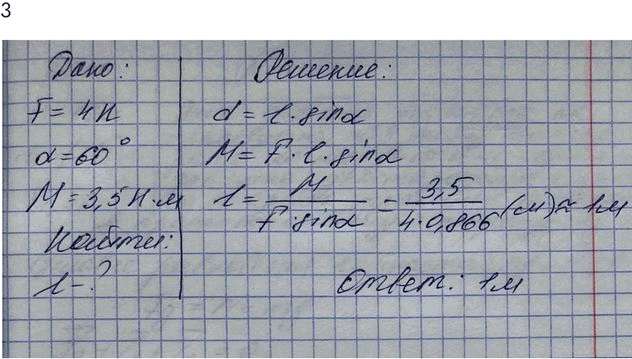 3
Дано:
F = 4Н
α = 60°
M = 3,5 Н·м
Найти:
l - ?
Решение:
d = l · sinα
M = F · l · sinα
l = M / (F · sinα) = 3,5 / (4 · 0,866) (м) ≈ 1м
Ответ: 1м